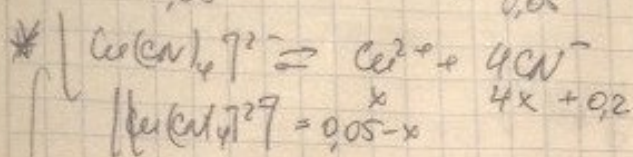 * [Cu(CN)₄]²⁻ ⇌ Cu²⁺ + 4CN⁻
x 4x + 0,2
[Cu(CN)₄]²⁻ = 0,05-x